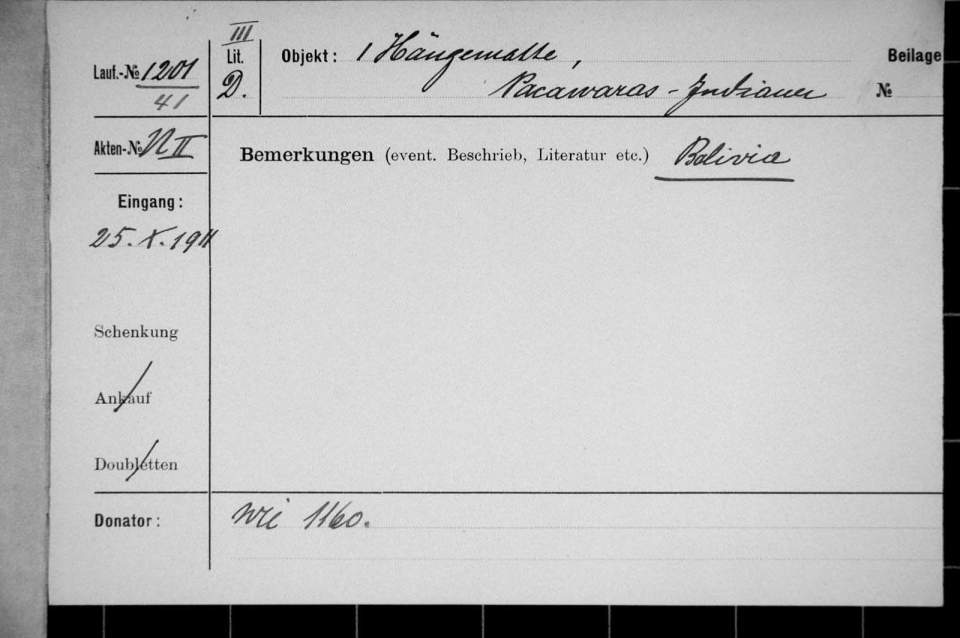 III
Lauf.-№ 1201
41
Lit.
D.
Objekt: 1 Hängematte,
Pacawaras-Indianer
Beilage
№
Akten-№ N II
Bemerkungen (event. Beschrieb, Literatur etc.) Bolivia
Eingang:
25. X. 1911
Schenkung
Ankauf
Doubletten
Donator: wie 1160.